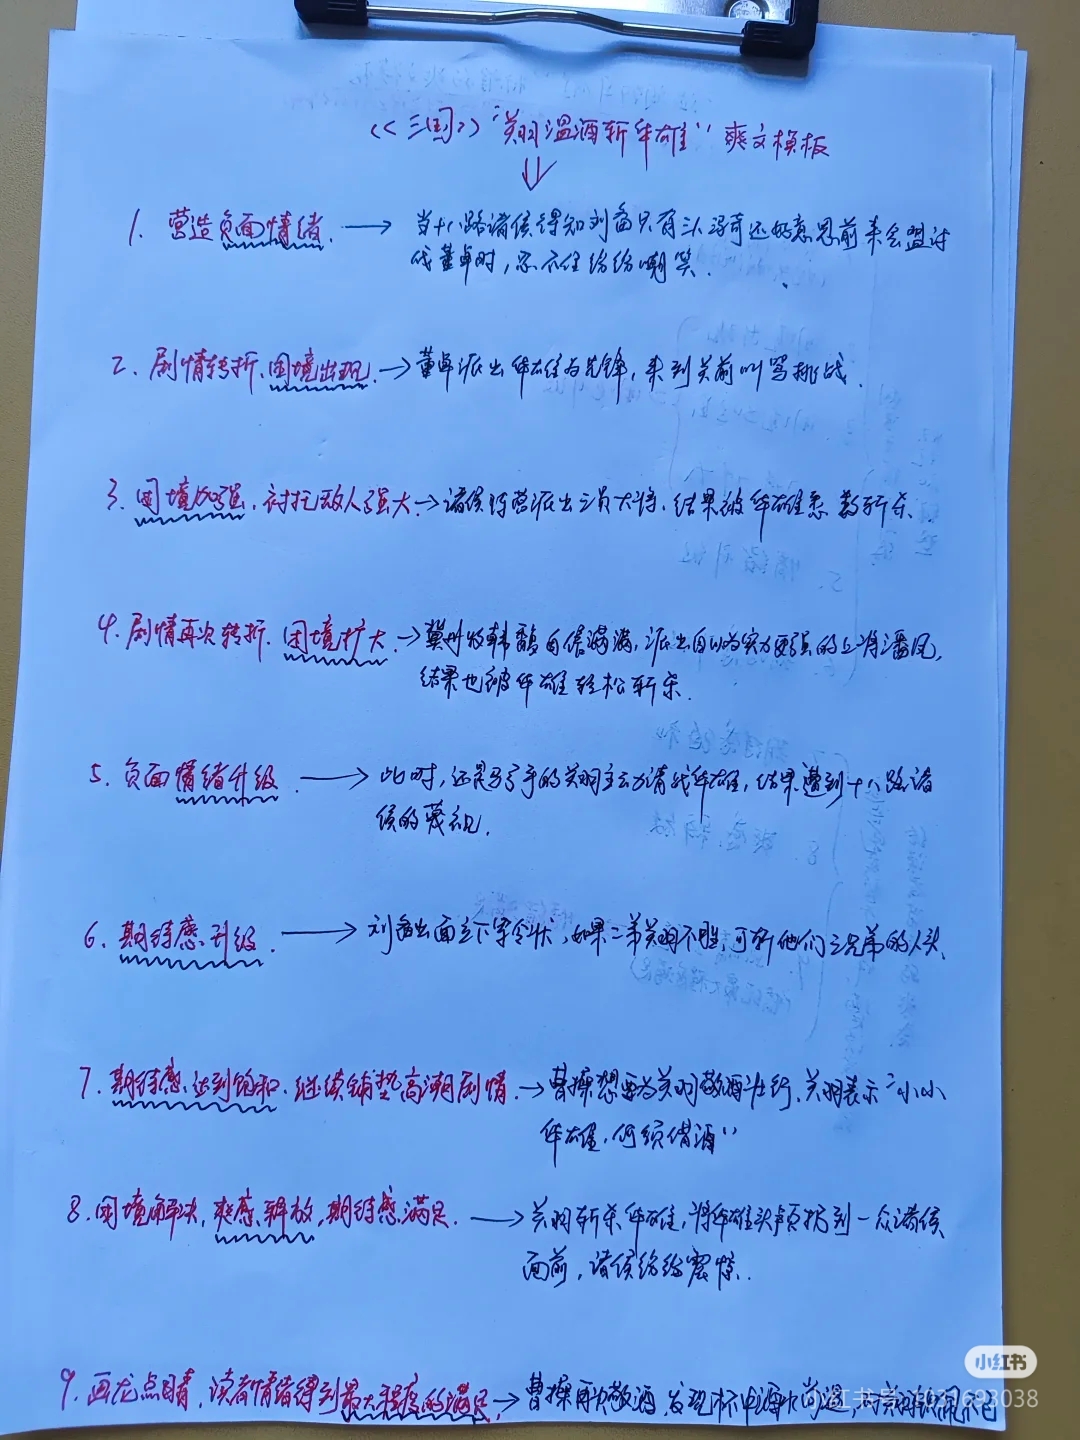 《三国》“关羽温酒斩华雄”爽文模板
1. 营造负面情绪. → 当十八路诸侯得知刘备只有三人浮奇还好意思前来会盟讨
伐董卓时，忍不住纷纷嘲笑.
2. 剧情转折、困境出现. → 董卓派出华雄为先锋，来到关前叫骂挑战.
3. 困境加强，衬托敌人强大. → 诸侯阵营派出三员大将，结果被华雄悉数斩杀.
4. 剧情再次转折. 困境扩大. → 冀州牧韩馥自信满满，派出自以为实力更强的上将潘凤，
结果也被华雄轻松斩杀.
5. 负面情绪升级. → 此时，还是弓手的关羽主动请战华雄，结果遭到十八路诸
侯的蔑视.
6. 期待感升级. → 刘备出面立下军令状，如果二弟关羽不胜，可斩他们三兄弟的人头.
7. 期待感达到饱和. 继续铺垫高潮剧情. → 曹操想要为关羽敬酒壮行、关羽表示“小小
华雄，何须借酒”
8. 困境解决，爽感释放，期待感满足. → 关羽斩杀华雄，将华雄头颅扔到一众诸侯
面前，诸侯纷纷震惊.
9. 画龙点睛，读者情绪得到最大程度的满足. → 曹操再次敬酒，发现杯中酒水尚温，
小红书